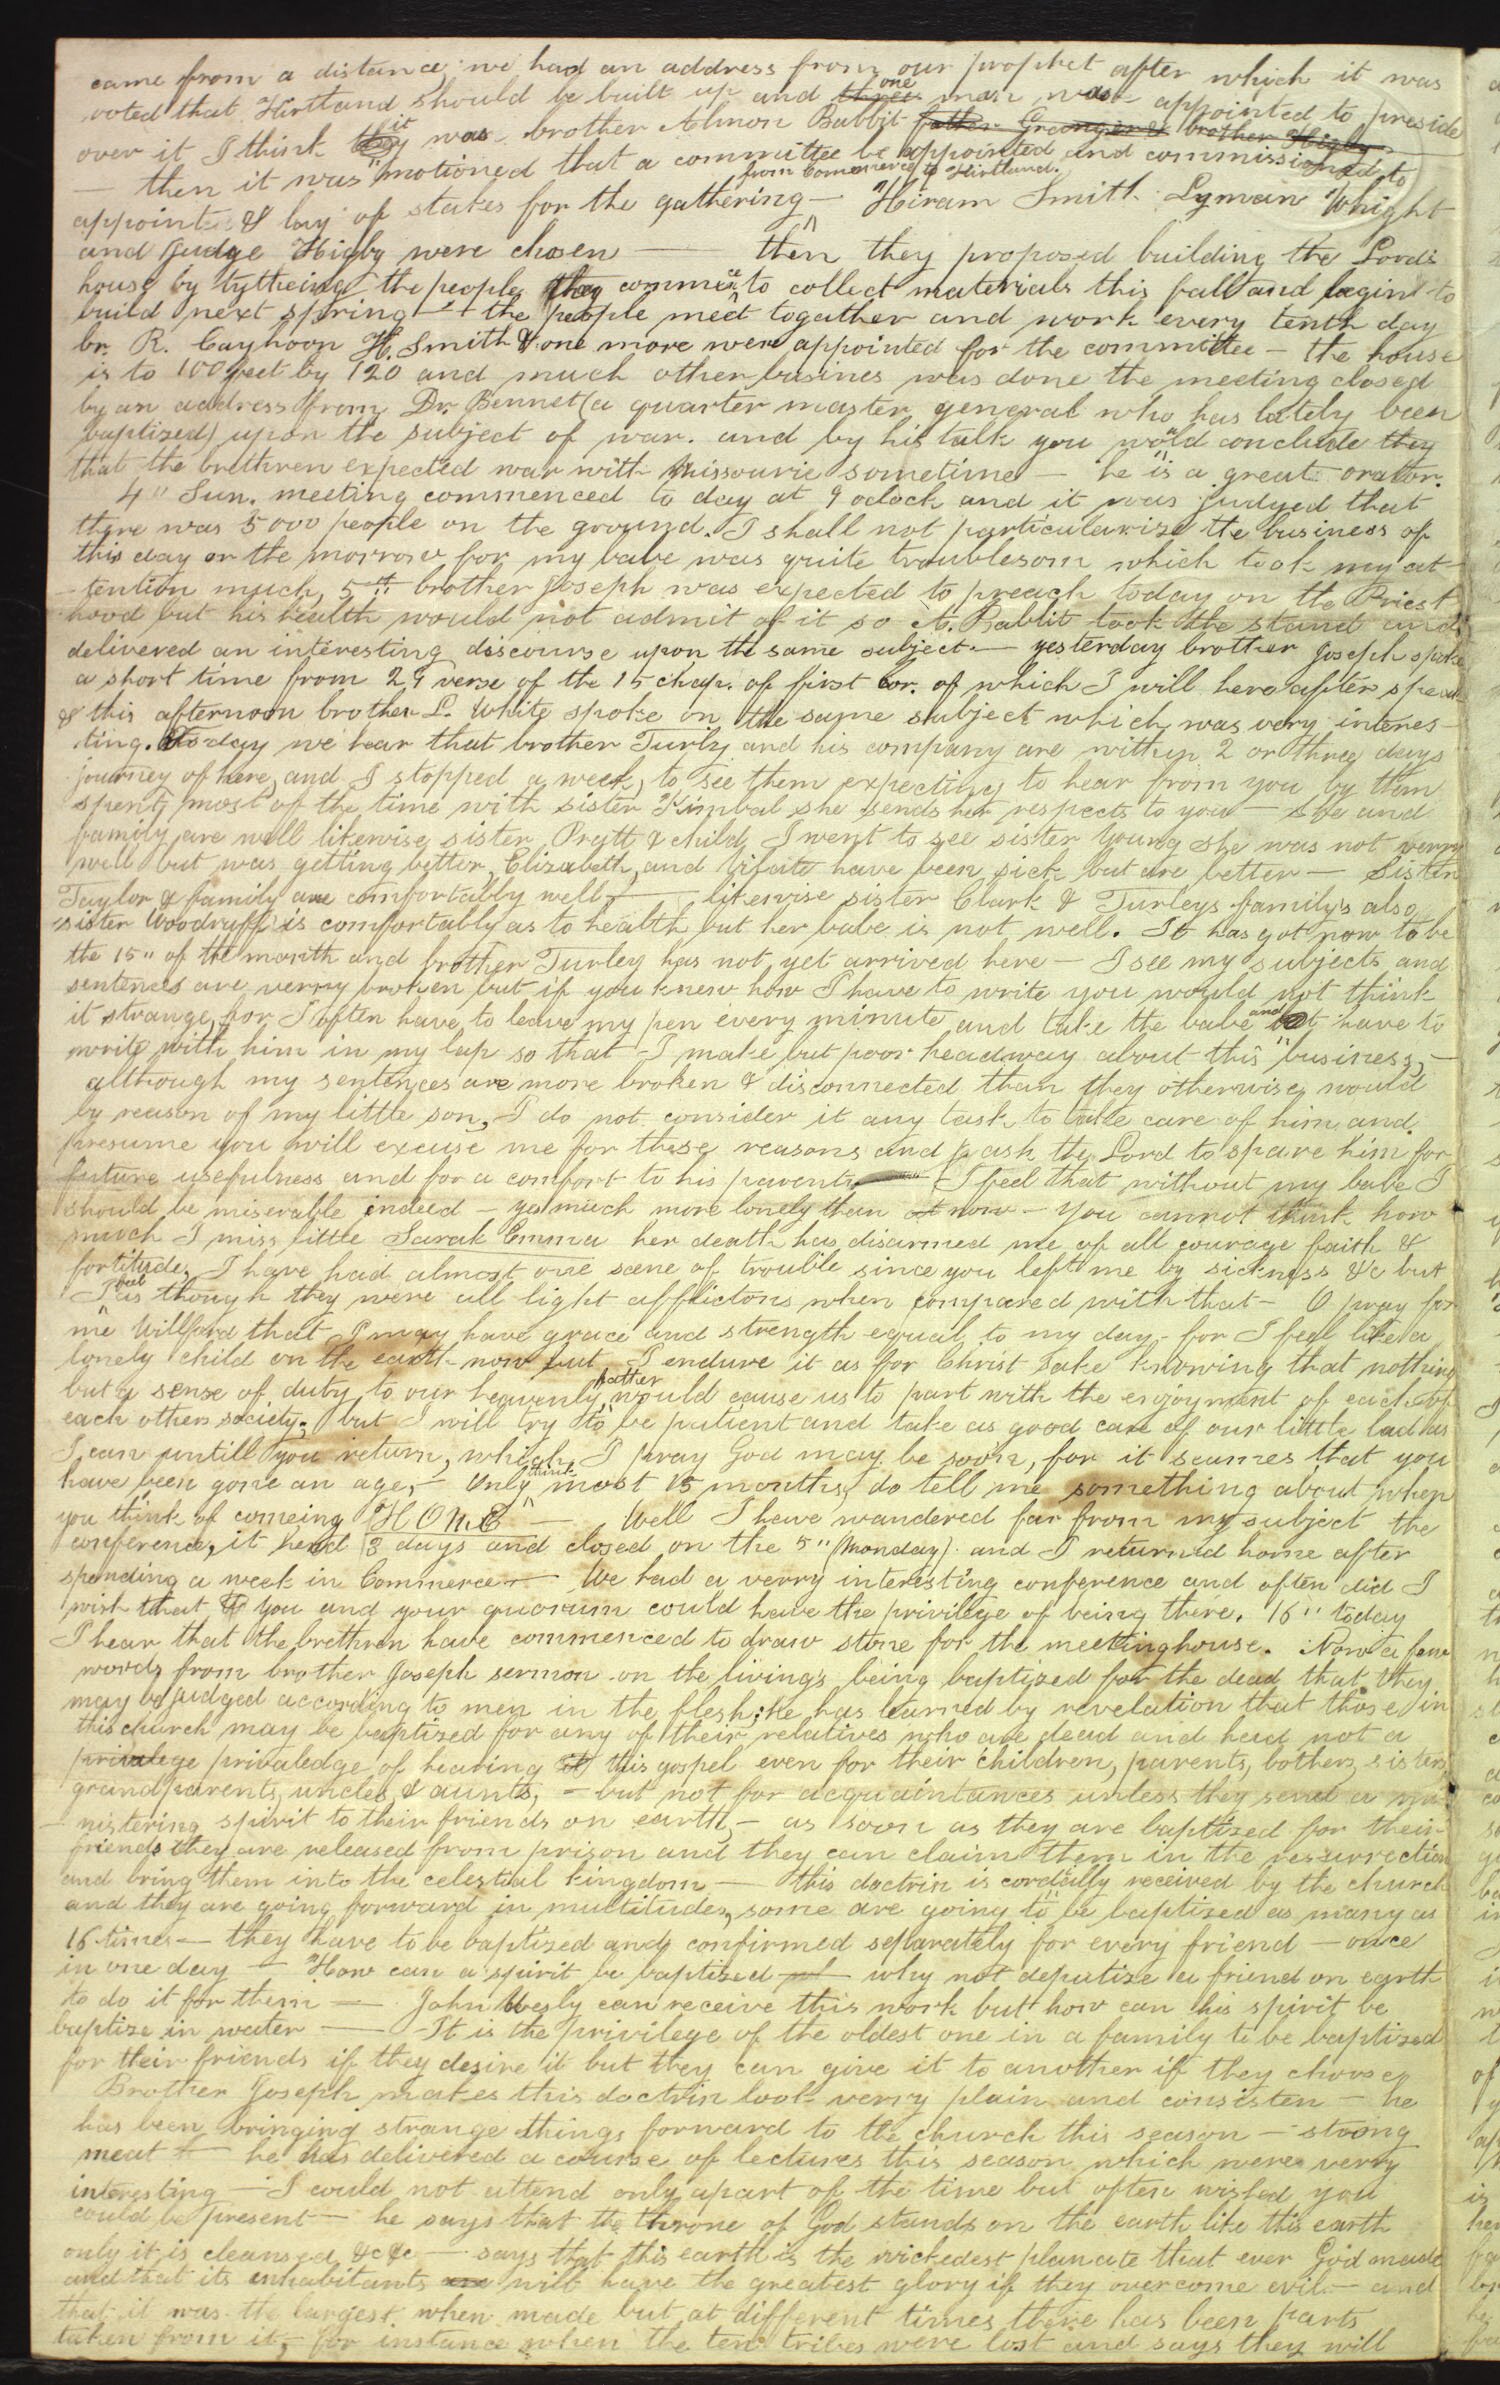 came from a distance; we had an address from our prophet after which it was
voted that Kirtland should be built up and three one man was appointed to preside
over it I think they it was brother Almon Babbit father Granger & brother Higby
— then it was motioned that a committee be appointed and commissioned to
appoint & lay of stakes for the gathering from Commerce to Kirtland. — Hiram Smith Lyman Whight
and Judge Higby were chosen — then they proposed building the Lords
house by tytheing the people they commence to collect materials this fall and begin to
build next spring — the people meet togather and work every tenth day
br. R. Cayhoon H. Smith & one more were appointed for the committee — the house
is to 100 feet by 120 and much other busines was done the meeting closed
by an address from Dr. Bennet (a quarter master general who has lately been
baptized) upon the subject of war. and by his talk you would conclude they
that the brethren expected war with Missourie sometime — he is a great orator.
4" Sun. meeting commenced to day at 9 oclock and it was judged that
there was 5000 people on the ground. I shall not particularize the business of
this day or the morrow for my babe was quite troublesom which took my at-
-tention much, 5th" brother Joseph was expected to preach today on the Priest
hood but his health would not admit of it so A. Babbit took the stand and
delivered an interesting discourse upon the same subject. — yesterday brother Joseph spoke
a short time from 29 verse of the 15 chap. of first Cor. of which I will hereafter speak
& this afternoon brother L. White spoke on the same subject which was very interes-
ting. To day we hear that brother Turly and his company are within 2 or three days
journey of here, and I stopped a week, to see them expecting to hear from you by them
spent most of the time with sister Kimbal she sends her respects to you — she and
family are well likewise sister Pratt & child I went to see sister Young she was not verry
well but was getting better, Elizabeth, and Vilate have been sick but are better — Sister
Taylor & family are comfortably well, — likewise sister Clark & Turleys family's also
sister Woodruff is comfortably as to health but her babe is not well. It has got now to be
the 15" of the month and brother Turley has not yet arrived here — I see my subjects and
sentences are verry broken but if you knew how I have to write you would not think
it strange, for I often have to leave my pen every minute and take the babe and have to
write with him in my lap so that I make but poor headway about this business, —
although my sentences are more broken & disconnected than they otherwise would
by reason of my little son, I do not consider it any task to take care of him and
presume you will excuse me for these reasons and ask the Lord to spare him for
future usefulness and for a comfort to his parents — I feel that without my babe I
should be miserable indeed — yea much more lonely than at now — you cannot think how
much I miss little Sarah Emma her death has disarmed me of all courage faith &
fortitude, I have had almost one scene of trouble since you left me by sickness &c but
I but as though they were all light afflictons when compared with that — O pray for
me Willford that I may have grace and strength equal to my day, for I feel like a
lonely child on the earth now but I endure it as for Christ sake knowing that nothing
but a sense of duty to our heavenly father would cause us to part with the enjoyment of each of
each others society; but I will try to be patient and take as good care of our little lad as
I can untill you return, which I pray God may be soon, for it seames that you
have been gone an age, — Only think most 15 months, do tell me something about when
you think of comeing HOME — Well I have wandered far from my subject the
conference, it held 3 days and closed on the 5" (Monday) and I returned home after
spending a week in Commerce — We had a verry interesting conference and often did I
wish that you and your quorum could have the privilege of being there. 16" today
I hear that the brethren have commenced to draw stone for the meetinghouse. Now a few
words from brother Joseph sermon on the living's being baptized for the dead that they
may be judged according to men in the flesh; he has learned by revelation that those in
this church may be baptized for any of their relatives who are dead and had not a
privalege privaledge of hearing it this gospel even for their children, parents, bothers, sisters,
grandparents, uncles, & aunts, — but not for acquaintances unless they send a mi-
-nistering spirit to their friends on earth, — as soon as they are baptized for their
friends they are released from prison and they can claim them in the resurrection
and bring them into the celestial kingdom — this doctrin is cordially received by the church
and they are going forward in multitudes, some are going to be baptized as many as
16 times — they have to be baptized and confirmed separately for every friend — once
in one day — How can a spirit be baptized why not deputize a friend on earth
to do it for them — John Wesly can receive this work but how can his spirit be
baptize in water — It is the privilege of the oldest one in a family to be baptized
for their friends if they desire it but they can give it to another if they choose
Brother Joseph makes this doctrin look verry plain and consisten — he
has been bringing strange things forward to the church this season — strong
meat — he has delivered a course of lectures this season which were verry
interesting — I could not attend only apart of the time but often wished you
could be present — he says that the throne of God stands on the earth like this earth
only it is cleansed &c &c — says that this earth is the wickedest planate that ever God made
and that its enhabitants are will have the greatest glory if they overcome evil — and
that it was the largest when made but at different times there has been parts
taken from it, for instance when the ten tribes were lost and says they will